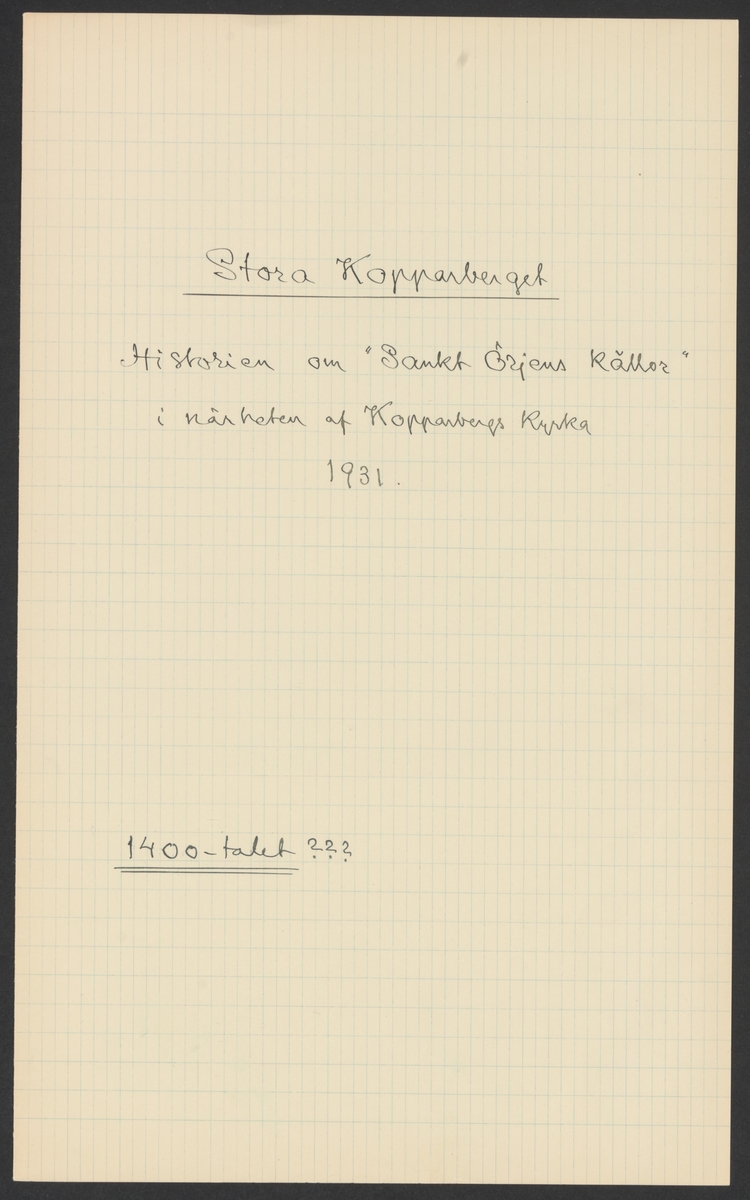 Stora Kopparberget
Historien om "Sankt Örjens källor"
i närheten af Kopparbergs Kyrka
1931.
1400-talet ???